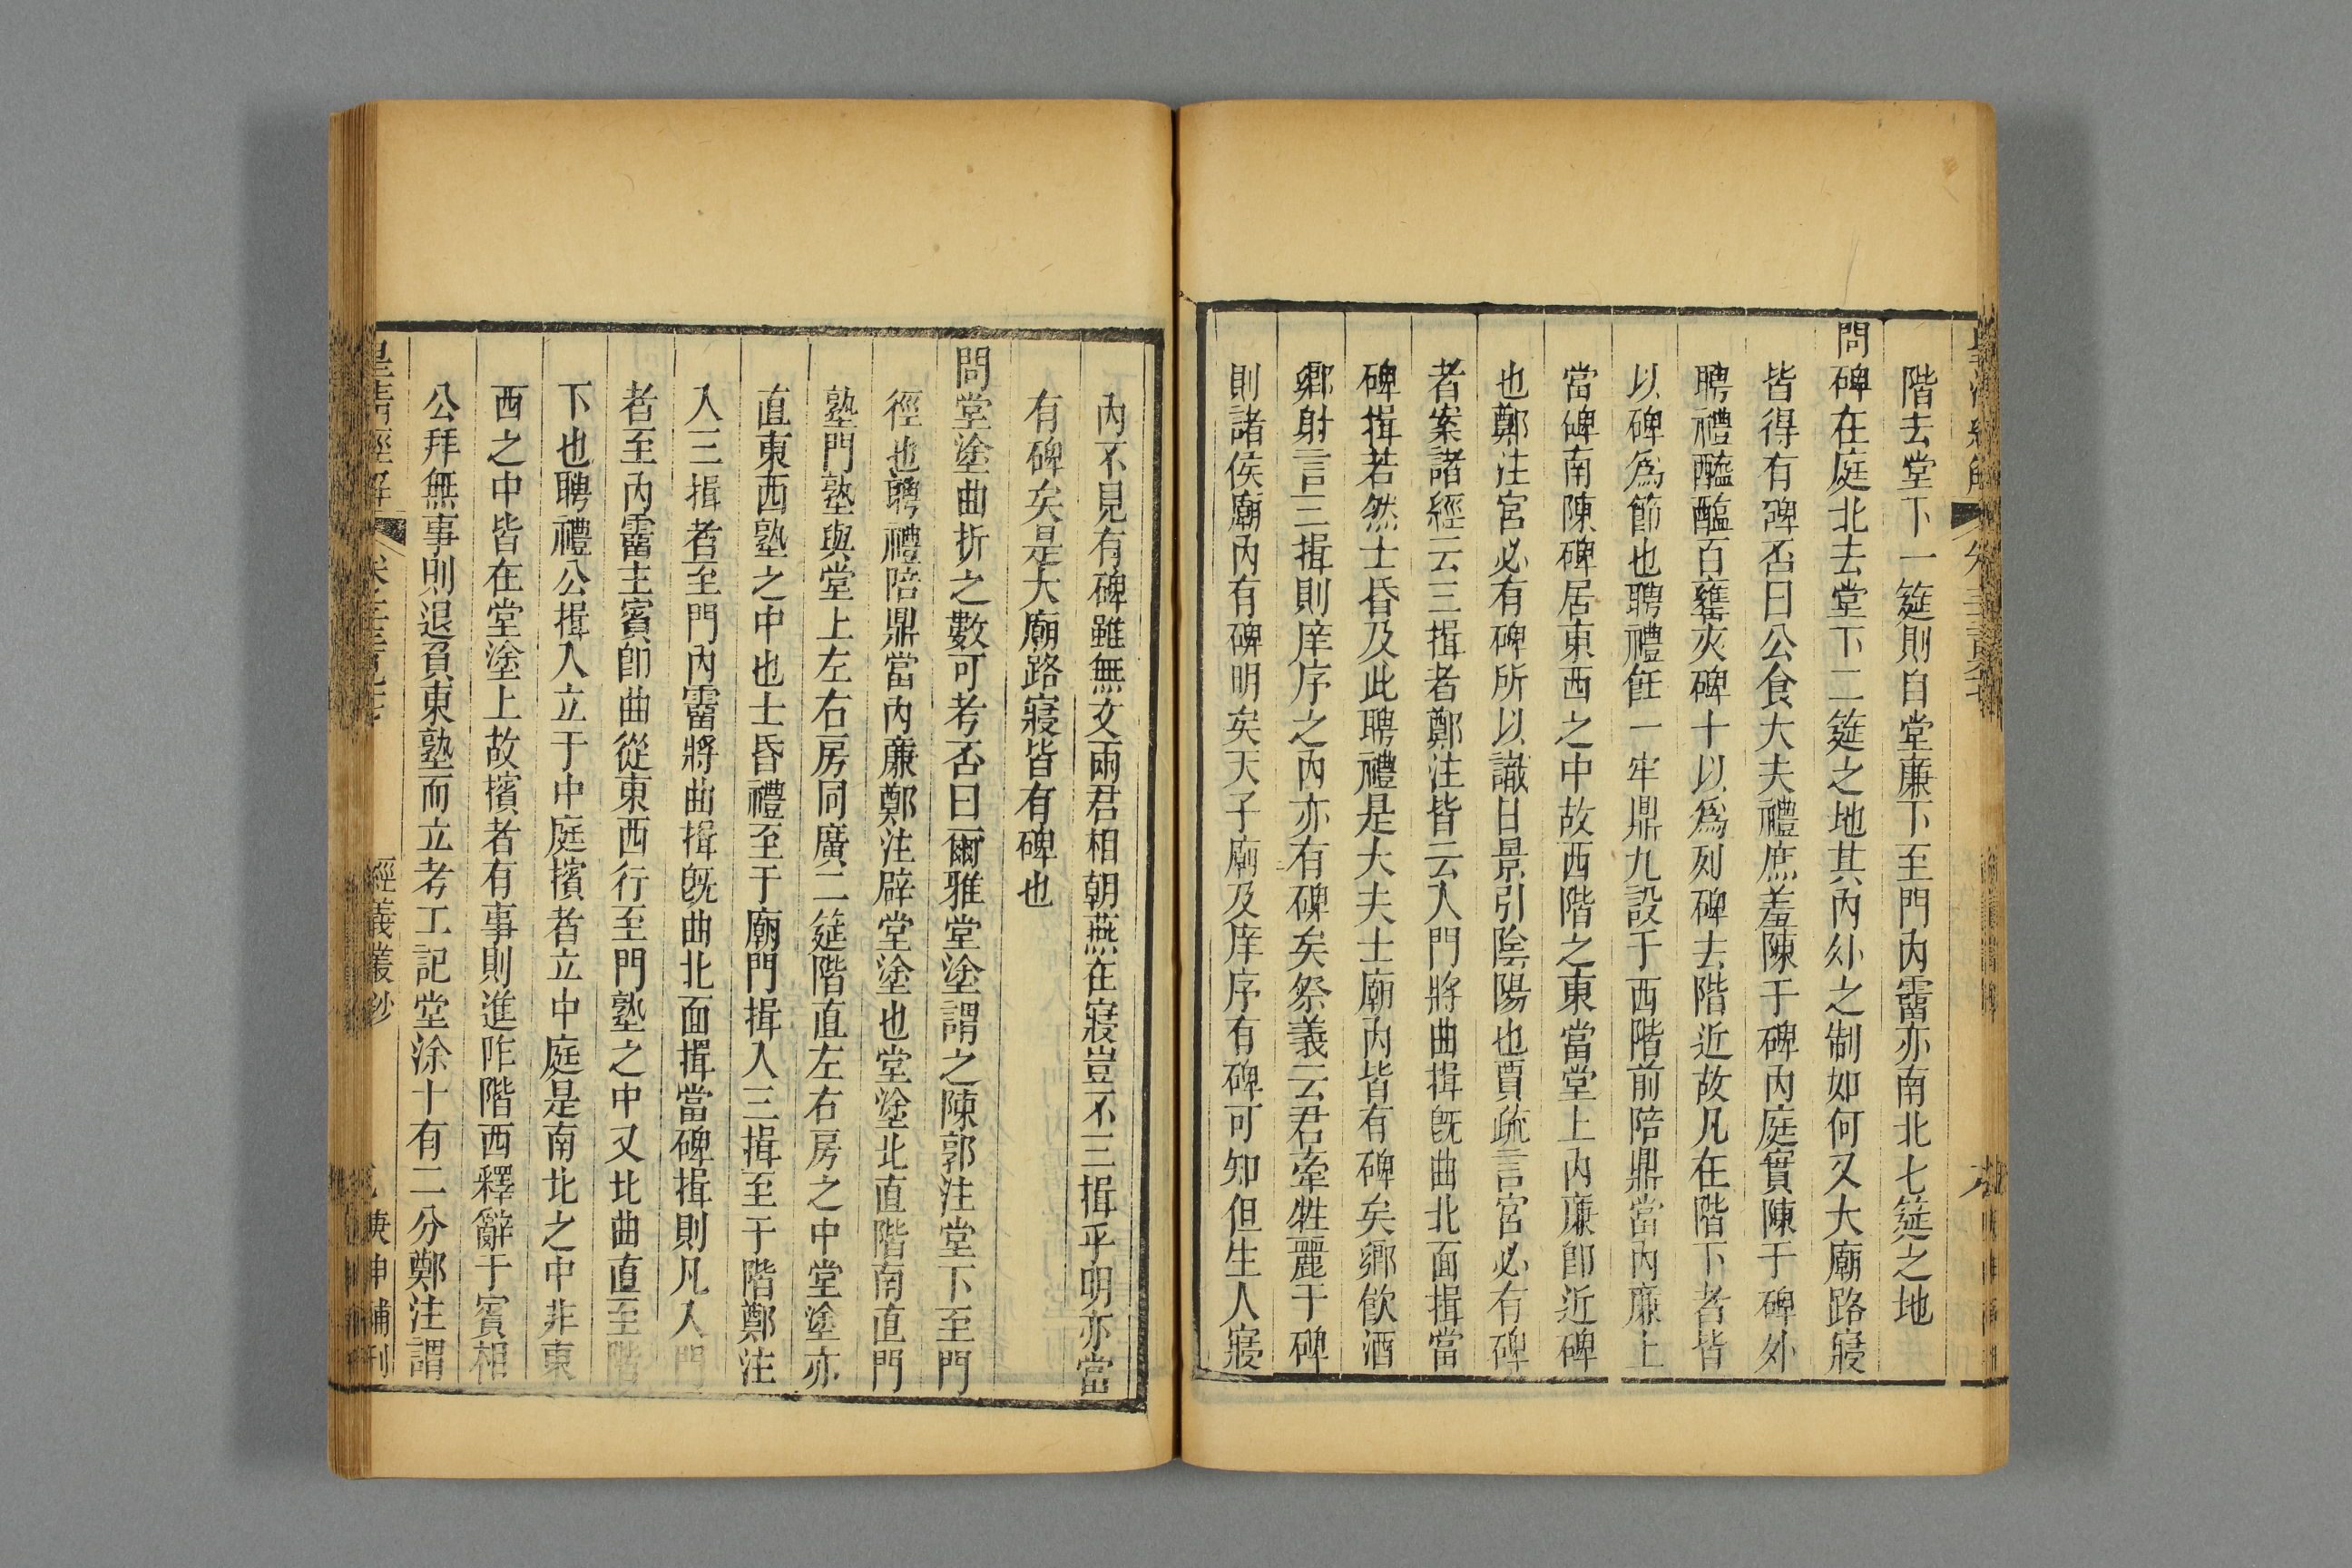 階去堂下一筵則自堂廉下至門內霤亦南北七筵之地
問碑在庭北去堂下二筵之地其內外之制如何又大廟路寢
皆得有碑否曰公食大夫禮庶羞陳于碑內庭實陳于碑外
聘禮醯醢百罋夾碑十以爲列碑去階近故凡在階下者皆
以碑爲節也聘禮飪一牢鼎九設于西階前陪鼎當內廉上
當碑南陳碑居東西之中故西階之東當堂上內廉卽近碑
也鄭注宮必有碑所以識日景引陰陽也賈疏言宮必有碑
者案諸經云三揖者鄭注皆云入門將曲揖旣曲北面揖當
碑揖若然士昏及此聘禮是大夫士廟內皆有碑矣鄉飮酒
鄉射言三揖則庠序之內亦有碑矣祭義云君牽牲麗于碑
則諸侯廟內有碑明矣天子廟及庠序有碑可知但生人寢
內不見有碑雖無文兩君相朝燕在寢豈不三揖乎明亦當
有碑矣是大廟路寢皆有碑也
問堂塗曲折之數可考否曰爾雅堂塗謂之陳郭注堂下至門
徑也聘禮陪鼎當內廉鄭注辟堂塗也堂塗北直階南直門
塾門塾與堂上左右房同廣二筵階直左右房之中堂塗亦
直東西塾之中也士昏禮至于廟門揖入三揖至于階鄭注
入三揖者至門內霤將曲揖旣曲北面揖當碑揖則凡入門
者至內霤主賓卽曲從東西行至門塾之中又北曲直至階
下也聘禮公揖入立于中庭擯者立中庭是南北之中非東
西之中皆在堂塗上故擯者有事則進阼階西釋辭于賓相
公拜無事則退負東塾而立考工記堂涂十有二分鄭注謂
皇淸經解
經義叢鈔
庚申補刊